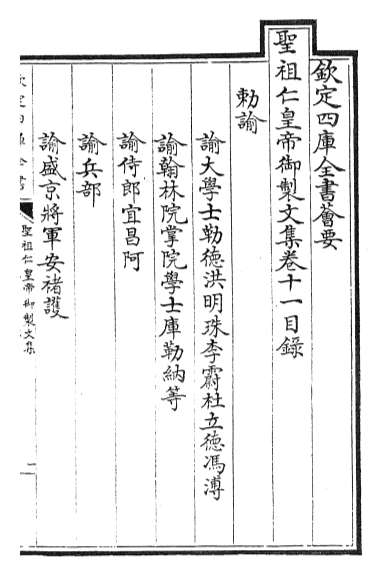 欽定四庫全書薈要
聖祖仁皇帝御製文集卷十一目錄
勅諭
諭大學士勒德洪明珠李霨杜立德馮溥
諭翰林院掌院學士庫勒納等
諭侍郎宜昌阿
諭兵部
諭盛京將軍安褚護
欽定四庫全書
聖祖仁皇帝御製文集